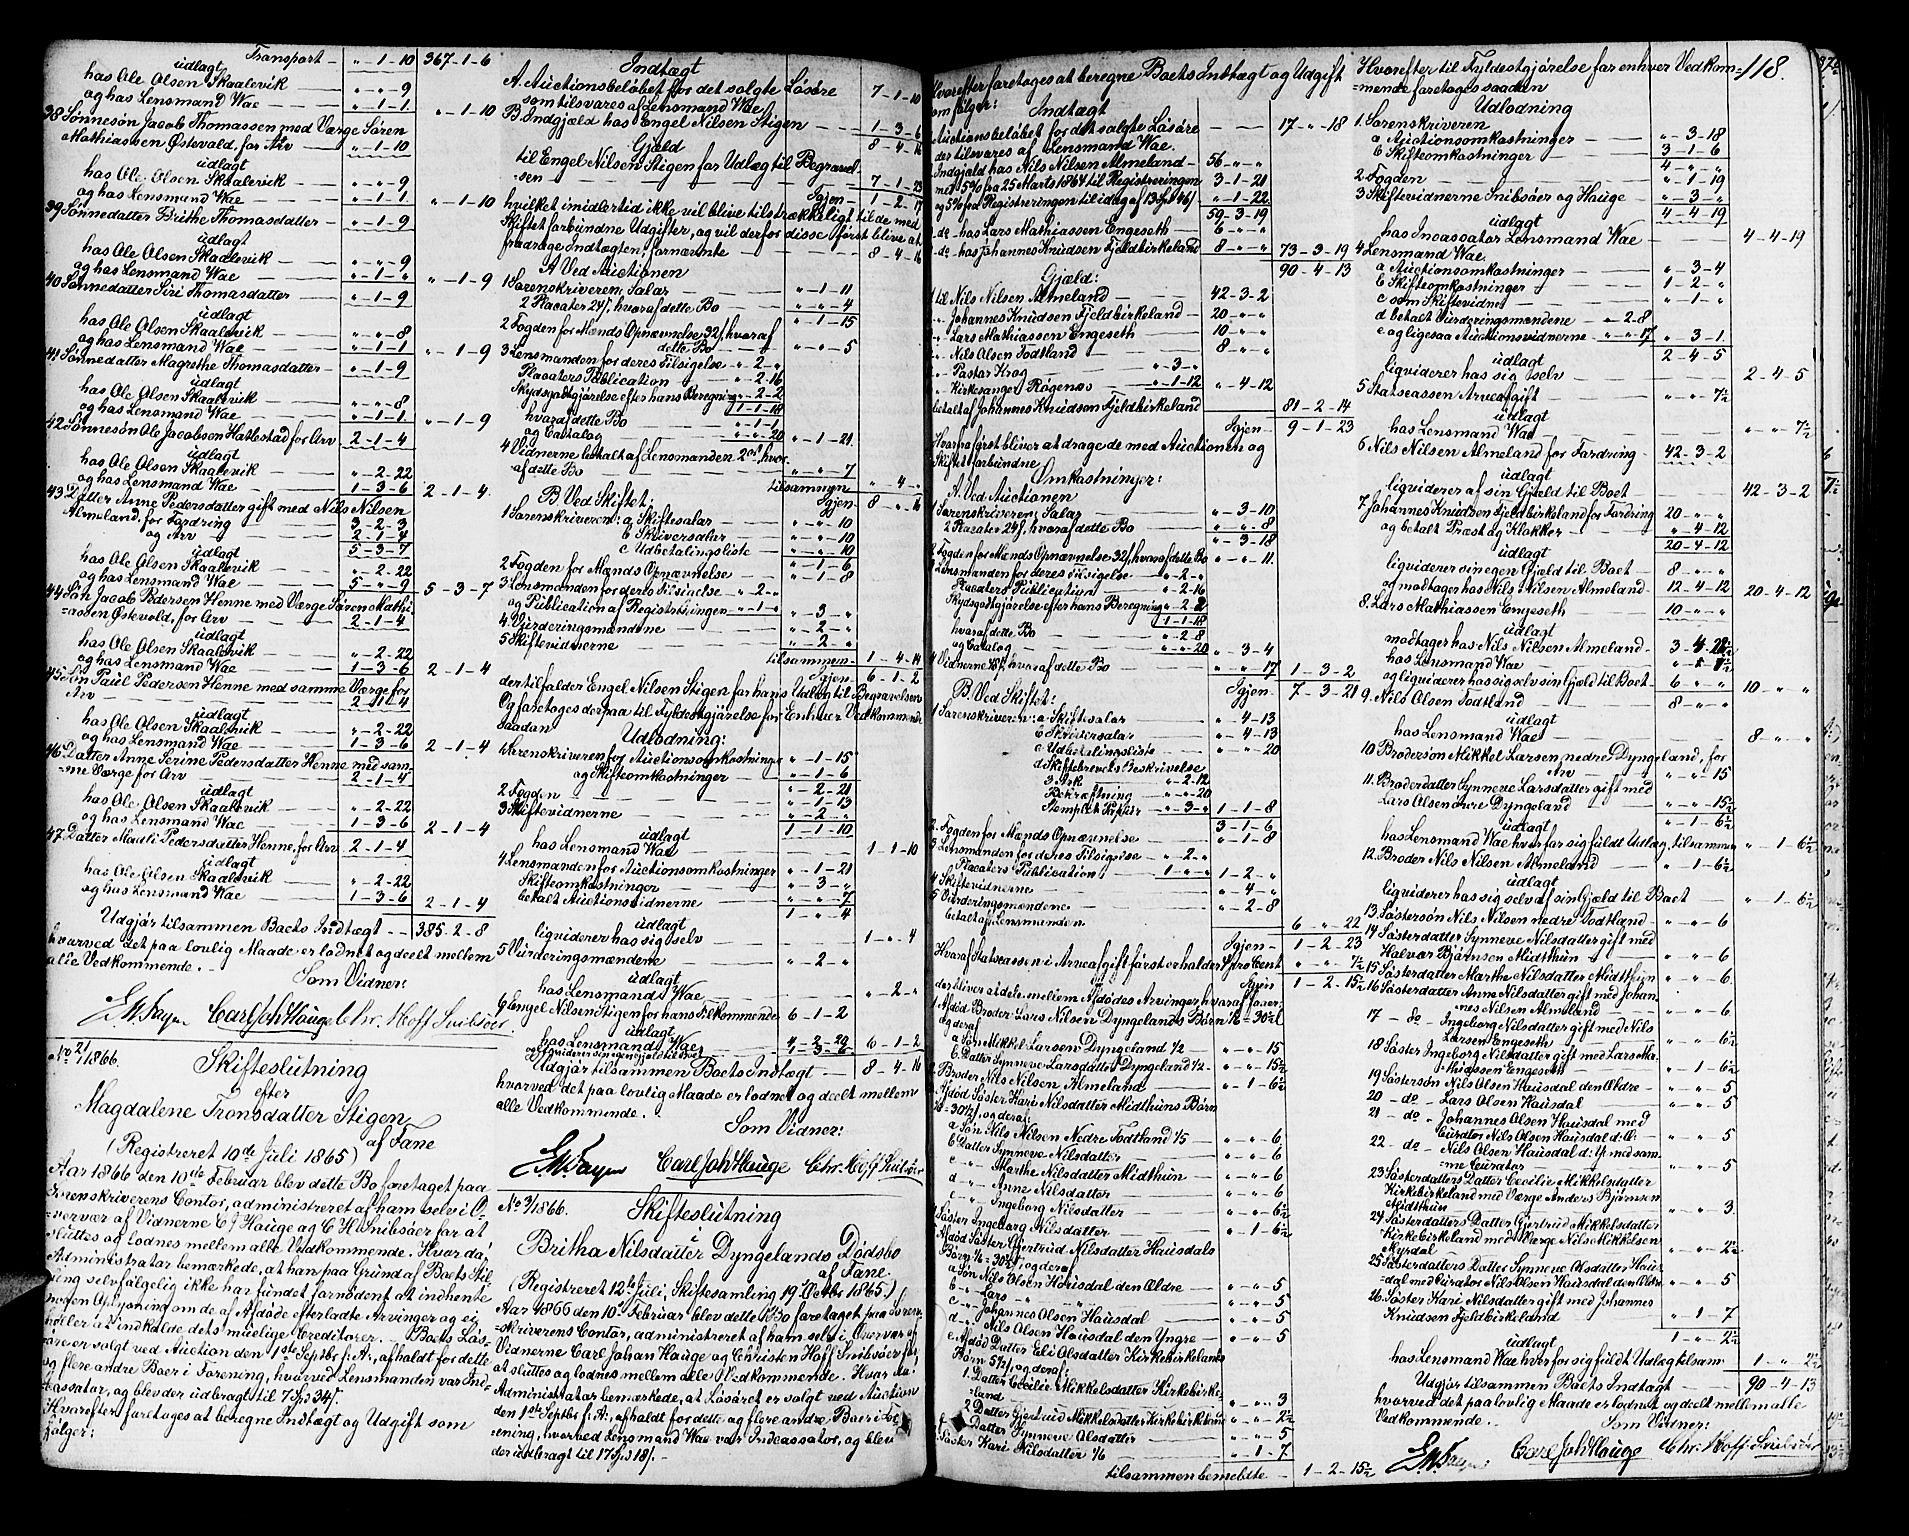 Transport — „-1-10 367-1-6
udlagt
hos Ole Olsen Skaalevik — „-„-9
og hos Lensmand Wae — „-1-1 „-1-10
38 Sønnesøn Jacob Thomassen med Værge Søren
Mathiassen Østevold, for Arv — „-1-10
udlagt
hos Ole Olsen Skaalevik — „-„-9
og hos Lensmand Wae — „-1-1 „-1-10
39 Sønnedatter Brithe Thomasdatter — „-1-9
udlagt
hos Ole Olsen Skaalevik — „-„-9
og hos Lensmand Wae — „-1-„ „-1-9
40 Sønnedatter Siri Thomasdatter — „-1-9
udlagt
hos Ole Olsen Skaalevik — „-„-8
og hos Lensmand Wae — „-1-1 „-1-9
41 Sønnedatter Magrethe Thomasdatter — „-1-9
udlagt
hos Ole Olsen Skaalevik — „-„-8
og hos Lensmand Wae — „-1-1 „-1-9
42 Sønnesøn Ole Jacobsen Hatlestad for Arv — 2-1-4
udlagt
hos Ole Olsen Skaalevik — „-2-22
og hos Lensmand Wae — 1-3-6 2-1-4
43 Datter Anne Pedersdatter gift med Nils Nilsen
Almeland, for Fordring — 3-2-3
og Arv — 2-1-4
5-3-7
udlagt
hos Ole Olsen Skaalevik — „-2-22
og hos Lensmand Wae — 5-„-9 5-3-7
44 Søn Jacob Pedersen Henne med Værge Søren Mathi-
=assen Østevold, for Arv — 2-1-4
udlagt
hos Ole Olsen Skaalevik — „-2-22
og hos Lensmand Wae — 1-3-6 2-1-4
45 Søn Paul Pedersen Henne med samme Værge for
Arv — 2-1-4
udlagt
hos Ole Olsen Skaalevik — „-2-22
og hos Lensmand Wae — 1-3-6 2-1-4
46 Datter Anne Serine Pedersdatter Henne med sam-
me Værge for Arv — 2-1-4
udlagt
hos Ole Olsen Skaalevik — „-2-22
og hos Lensmand Wae — 1-3-6 2-1-4
47 Datter Madli Pedersdatter Henne, for Arv 2-1-4
udlagt
hos Ole Olsen Skaalevik — „-2-22
og hos Lensmand Wae — 1-3-6 2-1-4
Udgjør tilsammen Boets Indtægt — 385-2-8
hvorved det paa lovlig Maade er lodnet og deelt mellem
alle Vedkommende.
Som Vidner:
Carl Joh Hauge Chr. Hoff Snibsøer
No 2/1866.
Skifteslutning
efter
Magdalene Tronsdatter Stigen
af Fane
(Registreret 10de Juli 1865)
Aar 1866 den 10de Februar blev dette Bo foretaget paa
Sorenskriverens Contor, administreret af ham selv i O-
=vervær af Vidnerne C J Hauge og C H Snibsøer for at
sluttes og lodnes mellem alle Vedkommende. Hvor da
Administrator bemærkede, at han paa Grund af Boets Stil-
ling selvfølgelig ikke har fundet fornødent at indhente
nogen Oplysning om de af Afdøde efterladte Arvinger og ei
heller at indkalde dets muelige Creditorer. — Boets Løs-
øre er solgt ved Auction den 1ste Septbr f. A., afholdt for dette
og flere andre Boer i Forening, hvorved Lensmanden var Ind-
cassator, og blev der udbragt til 7 Spd 34 s.
Hvorefter foretages at beregne Indtægt og Udgift som
følger:
Indtægt
A. Auctionsbeløbet for det solgte Løsøre
som tilsvares af Lensmand Wae — 7-1-10
B. Indgjæld hos Engel Nilsen Stigen — 1-3-6
8-4-16
Gjæld
til Engel Nilsen Stigen for Udlæg til Begravel-
sen — 7-1-23
Igjen — 1-2-17
hvilket imidlertid ikke vil blive tilstrækkeligt til de med
Skiftet forbundne Udgifter, og vil derfor disse først blive at
fradrage Indtægten, fornævnte — 8-4-16
A Ved Auctionen
1 Sorenskriveren, Salær — „-1-11
2 Placater 24 s, hvoraf dette Bo — „-„-4
„-1-15
2 Fogden for Mænds Opnævnelse 32 s, hvoraf
dette Bo — „-„-5
3 Lensmanden for deres Tilsigelse — „-2-„
Placaters Publication — „-2-16
Skydsgodtgjørelse efter hans Beregning „-2-2
1-1-18
hvoraf dette Bo — „-1-1
og Catalog — „-„-20 „-1-21
4 Vidnerne betalt af Lensmanden 2 ort, hvor-
af dette Bo — „-„-7
tilsammen „-4-„
B Ved Skiftet: Igjen — 8-„-16
1 Sorenskriveren: a Skiftesalær — „-„-10
b Skriversalær — „-„-10
c Udbetalingsliste — „-„-10
„-1-6
2 Fogden for Mænds Opnævnelse — „-1-8
3 Lensmanden for deres Tilsigelse — „-2-„
og Publication af Registreringen — „-1-„ „-3-„
4 Vurderingsmændene — „-2-„
5 Skiftevidnerne — „-2-„
tilsammen 1-4-14
Igjen — 6-1-2
der tilfalder Engel Nilsen Stigen for hans Udlæg til Begravelsen
Og foretages derpaa til Fyldestgjørelse for Enhver Vedkommende
saadan Udlodning:
Sorenskriveren for Auctionsomkostninger „-1-15
og Skifteomkostninger — „-1-6
„-2-21
2 Fogden — „-1-13
3 Skiftevidnerne — „-2-„
1-1-10
udlagt
hos Lensmand Wae — 1-1-10
4 Lensmanden for Auctionsomkostninger „-1-21
Skifteomkostninger — „-3-„
betalt Auctionsvidnerne — „-„-7
1-„-4
udlagt
liqviderer hos sig selv — 1-„-4
5 Vurderingsmændene — „-2-„
udlagt
hos Lensmands Wae — „-2-„
6 Engel Nilsen Stigen for hans Tilkommende 6-1-2
udlagt
hos Lensmands Wae — 4-2-20
og liqviderer sin egen Gjæld til Boet 1-3-6 6-1-2
Udgjør tilsammen Boets Indtægt — 8-4-16
hvorved det paa lovlig Maade er lodnet og deelt mellem
alle Vedkommende.
Som Vidner:
Carl Joh Hauge Chr. Hoff Snibsøer
No 3/1866. Skifteslutning
Britha Nilsdatter Dyngelands Dødsbo
af Fane
(Registreret 12te Juli, Skiftesamling 19 Octbr 1865.)
Aar 1866 den 10 Februar blev dette Bo foretaget paa Soren-
=skriverens Contor, administreret af ham selv i Overvær af
Vidnerne Carl Johan Hauge og Christen Hoff Snibsøer for
at sluttes og lodnes mellem alle Vedkommende. Hvor da
Administrator bemærkede, at Løsøret er solgt ved Auction
den 1ste Septbr f. A., afholdt for dette og flere andre Boer i Fo-
rening, hvorved Lensmand Wae var Indcassator, og blev
der udbragt til 17 Spd 18 s. —
Hvorefter foretages at beregne Boets Indtægt og Udgift
som følger:
Indtægt
Auctionsbeløbet for det solgte Løsøre — 17-„-18
der tilsvares af Lensmand Wae.
Indgjæld hos Nils Nilsen Almeland — 56-„-„
med 5% fra 25 Marts 1864 til Registreringen 3-1-21
og 5% fra Registreringen til idag af „-1-22
59-3-19
do hos Lars Mathiassen Engeseth — 6-„-„
do hos Johannes Knudsen Fjeldbirkeland 8-„-„ 73-3-19
90-4-13
Gjæld:
til Nils Nilsen Almeland — 42-3-2
„ Johannes Knudsen Fjeldbirkeland — 20-„-„
„ Lars Mathiassen Engeseth — 10-„-„
„ Nils Olsen Todtland — 8-„-„
„ Pastor Krog — „-3-„
„ Kirkesanger Rogenæs — „-1-12 „-4-12
betalt af Johannes Knudsen Fjeldbirkeland 81-2-14
Igjen — 9-1-23
Hvoraf først bliver at drage de med Auctionen og
Skiftet forbundne Omkostninger:
A. Ved Auctionen
1 Sorenskriveren, Salær — „-3-10
2 Placater 24 s, hvoraf dette Bo — „-„-8
„-3-18
2 Fogden for Mænds Opnævnelse 32 s, hvoraf dette Bo „-„-11
Lensmanden for deres Tilsigelse — „-2-„
Placaters Publication — „-2-16
Skydsgodtgjørelse efter hans Beregning „-2-2
1-1-18
hvoraf dette Bo — „-2-8
og Catalog — „-„-20 „-3-4
4 Vidnerne hvoraf dette Bo — „-„-17 1-3-2
B. Ved Skiftet: Igjen — 7-3-21
1 Sorenskriveren: a Skiftesalær — „-4-13
b Skriversalær — „-4-13
c Udbetalingsliste — „-„-20
d Skiftebrevets Beskrivelse
3 Ark — „-2-12
Bekræftning — „-„-20
Stemplet Papir — „-3-„ 1-1-8
3-1-6
2 Fogden for Mænds Opnævnelse — „-1-8
3 Lensmanden for deres Tilsigelse — „-2-„
Placaters Publication — 1-„-„ 1-2-„
4 Skiftevidnerne — „-4-„
5 Vurderingsmændene — „-2-8
betalt af Lensmanden. 6-„-22
Igjen — 1-2-23
Hvoraf Statscassen i Arveafgift først erholder ½ pro Cent „-„-7½
Igjen 1-2-15½
der bliver at dele mellem Afdødes Arvinger, hvoraf faaer:
1. Afdød Broder Lars Nilsen Dyngelands Børn ⅙ = 30½ s
og deraf
a Søn Mikkel Larsen Dyngeland ½ — „-„-15
b Datter Synneve Larsdatter Dyngeland ½ — „-„-15½
2 Broder Nils Nilsen Almeland — „-1-6½
Afdød Søster Kari Nilsdatter Midthuns Børn
⅙ = 30½ s, og deraf
a Søn Nils Nilsen Nedre Todtland ⅕ — „-„-6
b Datter Synneve Nilsdatter — „-„-6
c „ Marthe Nilsdatter Midthun — „-„-6
d „ Anne Nilsdatter — „-„-6
e „ Ingeborg Nilsdatter — „-„-6½
Søster Ingeborg Nilsdatter — „-1-6½
Afdød Søster Gjertrud Nilsdatter Hausdals
Børn ⅙ = 30½ s, og deraf
a Søn Nils Olsen Hausdal den Ældre — „-„-5
b „ Lars — „-„-5
c „ Johannes Olsen Hausdal — „-„-5
d „ Nils Olsen Hausdal den Yngre — „-„-5
e Afdød Datter Eli Olsdatter Kirkebirkelands
Børn 5½ s, og deraf
1. Datter Cecilie Mikkelsdatter Kirkebirke-
=land — „-„-3
2 Datter Gjertrud Mikkelsdatter Kirkebirkeland „-„-2½
f Datter Synneve Olsdatter — „-„-5
Søster Kari Nilsdatter ⅙ — „-1-7
tilsammen bemeldte — 1-2-15½
Hvorefter til Fyldestgjørelse for enhver Vedkom- 118.
=mende foretages saadan
Udlodning
1 Sorenskriveren
a Auctionsomkostninger — „-3-18
b Skifteomkostninger — 3-1-6
4-„-„
2 Fogden — „-1-19
3 Skiftevidnerne Snibsøer og Hauge — „-3-„
4-4-19
udlagt
hos Incassator Lensmand Wae — 4-4-19
4 Lensmand Wae.
a Auctionsomkostninger — „-3-4
b Skifteomkostninger — 1-2-„
c som Skiftevidne — „-1-„
d betalt Vurderingsmændene — „-2-8
e og ligesaa Auctionsvidnerne — „-„-17 „-3-1
2-4-5
udlagt
liqviderer hos sig selv — 2-4-5
5 Statscassen Arveafgift — „-„-7½
udlagt
hos Lensmand Wae — „-„-7½
6 Nils Nilsen Almeland for Fordring — 42-3-2
udlagt
liqviderer af sin Gjæld til Boet — 42-3-2
7 Johannes Knudsen Fjeldbirkeland for Fordring 20-„-„
og betalt Præst og Klokker — „-4-12
20-4-12
udlagt
liqviderer sin egen Gjæld til Boet — 8-„-„
og modtager hos Nils Nilsen Almeland — 12-4-12 20-4-12
8. Lars Mathiassen Engeseth — 10-„-„
udlagt
modtager hos Nils Nilsen Almeland —
hos Lensmand Wae —
og liqviderer hos sig selv sin Gjæld til Boet — 6-„-„ 10-„-„
9. Nils Olsen Todtland — 8-„-„
udlagt
hos Lensmand Wae — 8-„-„
10 Brodersøn Mikkel Larsen nedre Dyngeland, for
Arv — „-„-15
11. Broderdatter Synneve Larsdatter gift med
Lars Olsen Dyngeland — „-„-15½
„-1-6½
udlagt
hos Lensmand Wae hver for sig fuldt Udlæg, tilsammen „-1-6½
12. Broder Nils Nilsen Almeland — „-1-6½
udlagt
liqviderer hos sig selv af sin Gjæld til Boet — „-1-6½
13 Søstersøn Nils Nilsen nedre Todtland — „-„-6
14 Søsterdatter Synneve Nilsdatter gift med
Halvor Bjørnsen Midthun — „-„-6
15 Søsterdatter Marthe Nilsdatter Midthun — „-„-6
16 Søsterdatter Anne Nilsdatter gift med Johan-
nes Nilsen Almeland — „-„-6
17 do Ingeborg Nilsdatter gift med Nils
Larsen Engeseth — „-„-6½
18 Søster Ingeborg Nilsdatter gift med Lars Ma-
thiassen Engeseth — „-1-6½
19 Søstersøn Nils Olsen Hausdal den Ældre — „-„-5
20 do Lars Olsen Hausdal — „-„-5
21 do Johannes Olsen Hausdal med
Curator Nils Olsen Hausdal d: Æ: — „-„-5
22 do Nils Olsen Hausdal d: Y: med sam-
me Curator — „-„-5
23 Søsterdatters Datter Cecilie Mikkelsdatter
Kirkebirkeland med Værge Anders Bjørnsen
Midthun — „-„-3
24 Søsterdatters Datter Gjertrud Mikkelsdatter
Kirkebirkeland med Værge Nils Mikkelsen
Myrdal — „-„-2½
25 Søsterdatters Datter Synneve Olsdatter Haus-
=dal med Curator Nils Olsen Hausdal den Ældre „-„-5
26 Søster Kari Nilsdatter gift med Johannes
Knudsen Fjeldbirkeland — „-1-7
1-„-2½
udlagt
hos Lensmand Wae hver for sig fuldt Udlæg tilsam. 1-„-2½
Udgjør tilsammen Boets Indtægt — 90-4-13
hvorved det paa lovlig Maade er lodnet og deelt mellem alle
Vedkommende. Som Vidner:
Carl Joh Hauge Chr. Hoff Snibsøer